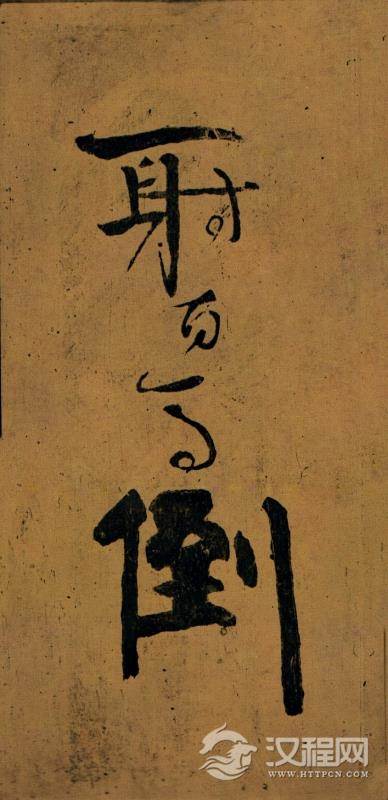 一射百馬倒
汉程网
WWW.HTTPCN.COM